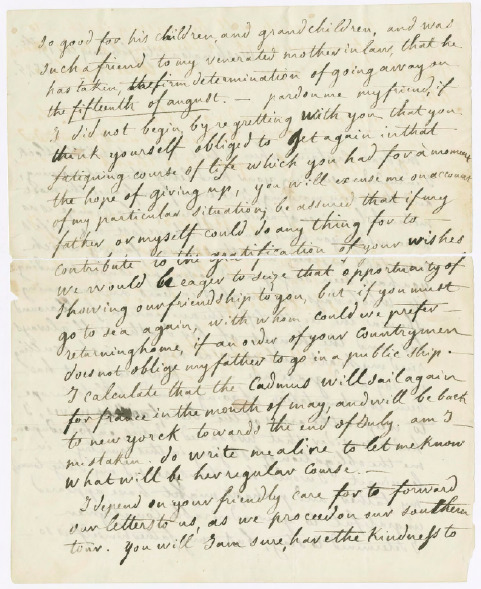 so good for his children, and grand children, and was
such a friend to my venerated mother in law, that he
has taken, the firm determination of going away on
the fifteenth of august. — pardon me my friend, if
I did not begin, by regretting with you that you
think yourself obliged to get again in that
fatiguing course of life which you had for a moment
the hope of giving up, you will excuse me on account
of my particular situation, be assured that if my
father or myself could do any thing for to —
contribute to the gratification of your wishes
we would be eager to seize that opportunity of
showing our friendship to you, but if you must
go to sea again, with whom could we prefer —
returning home, if an order of your countrymen
does not oblige my father to go in a public ship. —
I calculate that the Cadmus will sail again
for france in the month of may, and will be back
to new yorck towards the end of July. am I —
mistaken. do write me a line to let me know
what will be her regular course. —
I depend on your friendly care for to forward
our letters to us, as we proceed on our southern
tour. you will I am sure, have the kindness to